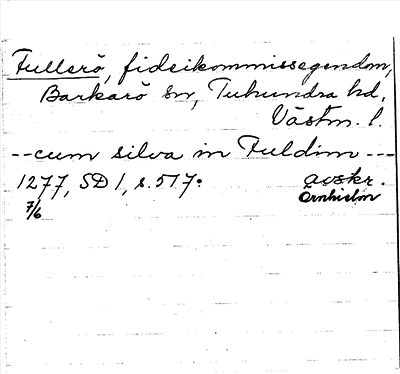 Fullerö, fideikommissegendom,
Barkarö sn, Tuhundra hd,
Västm. l.
--cum silva in Fuldim---
1277, SD 1, s. 517. avskr.
7/6 Örnhielm